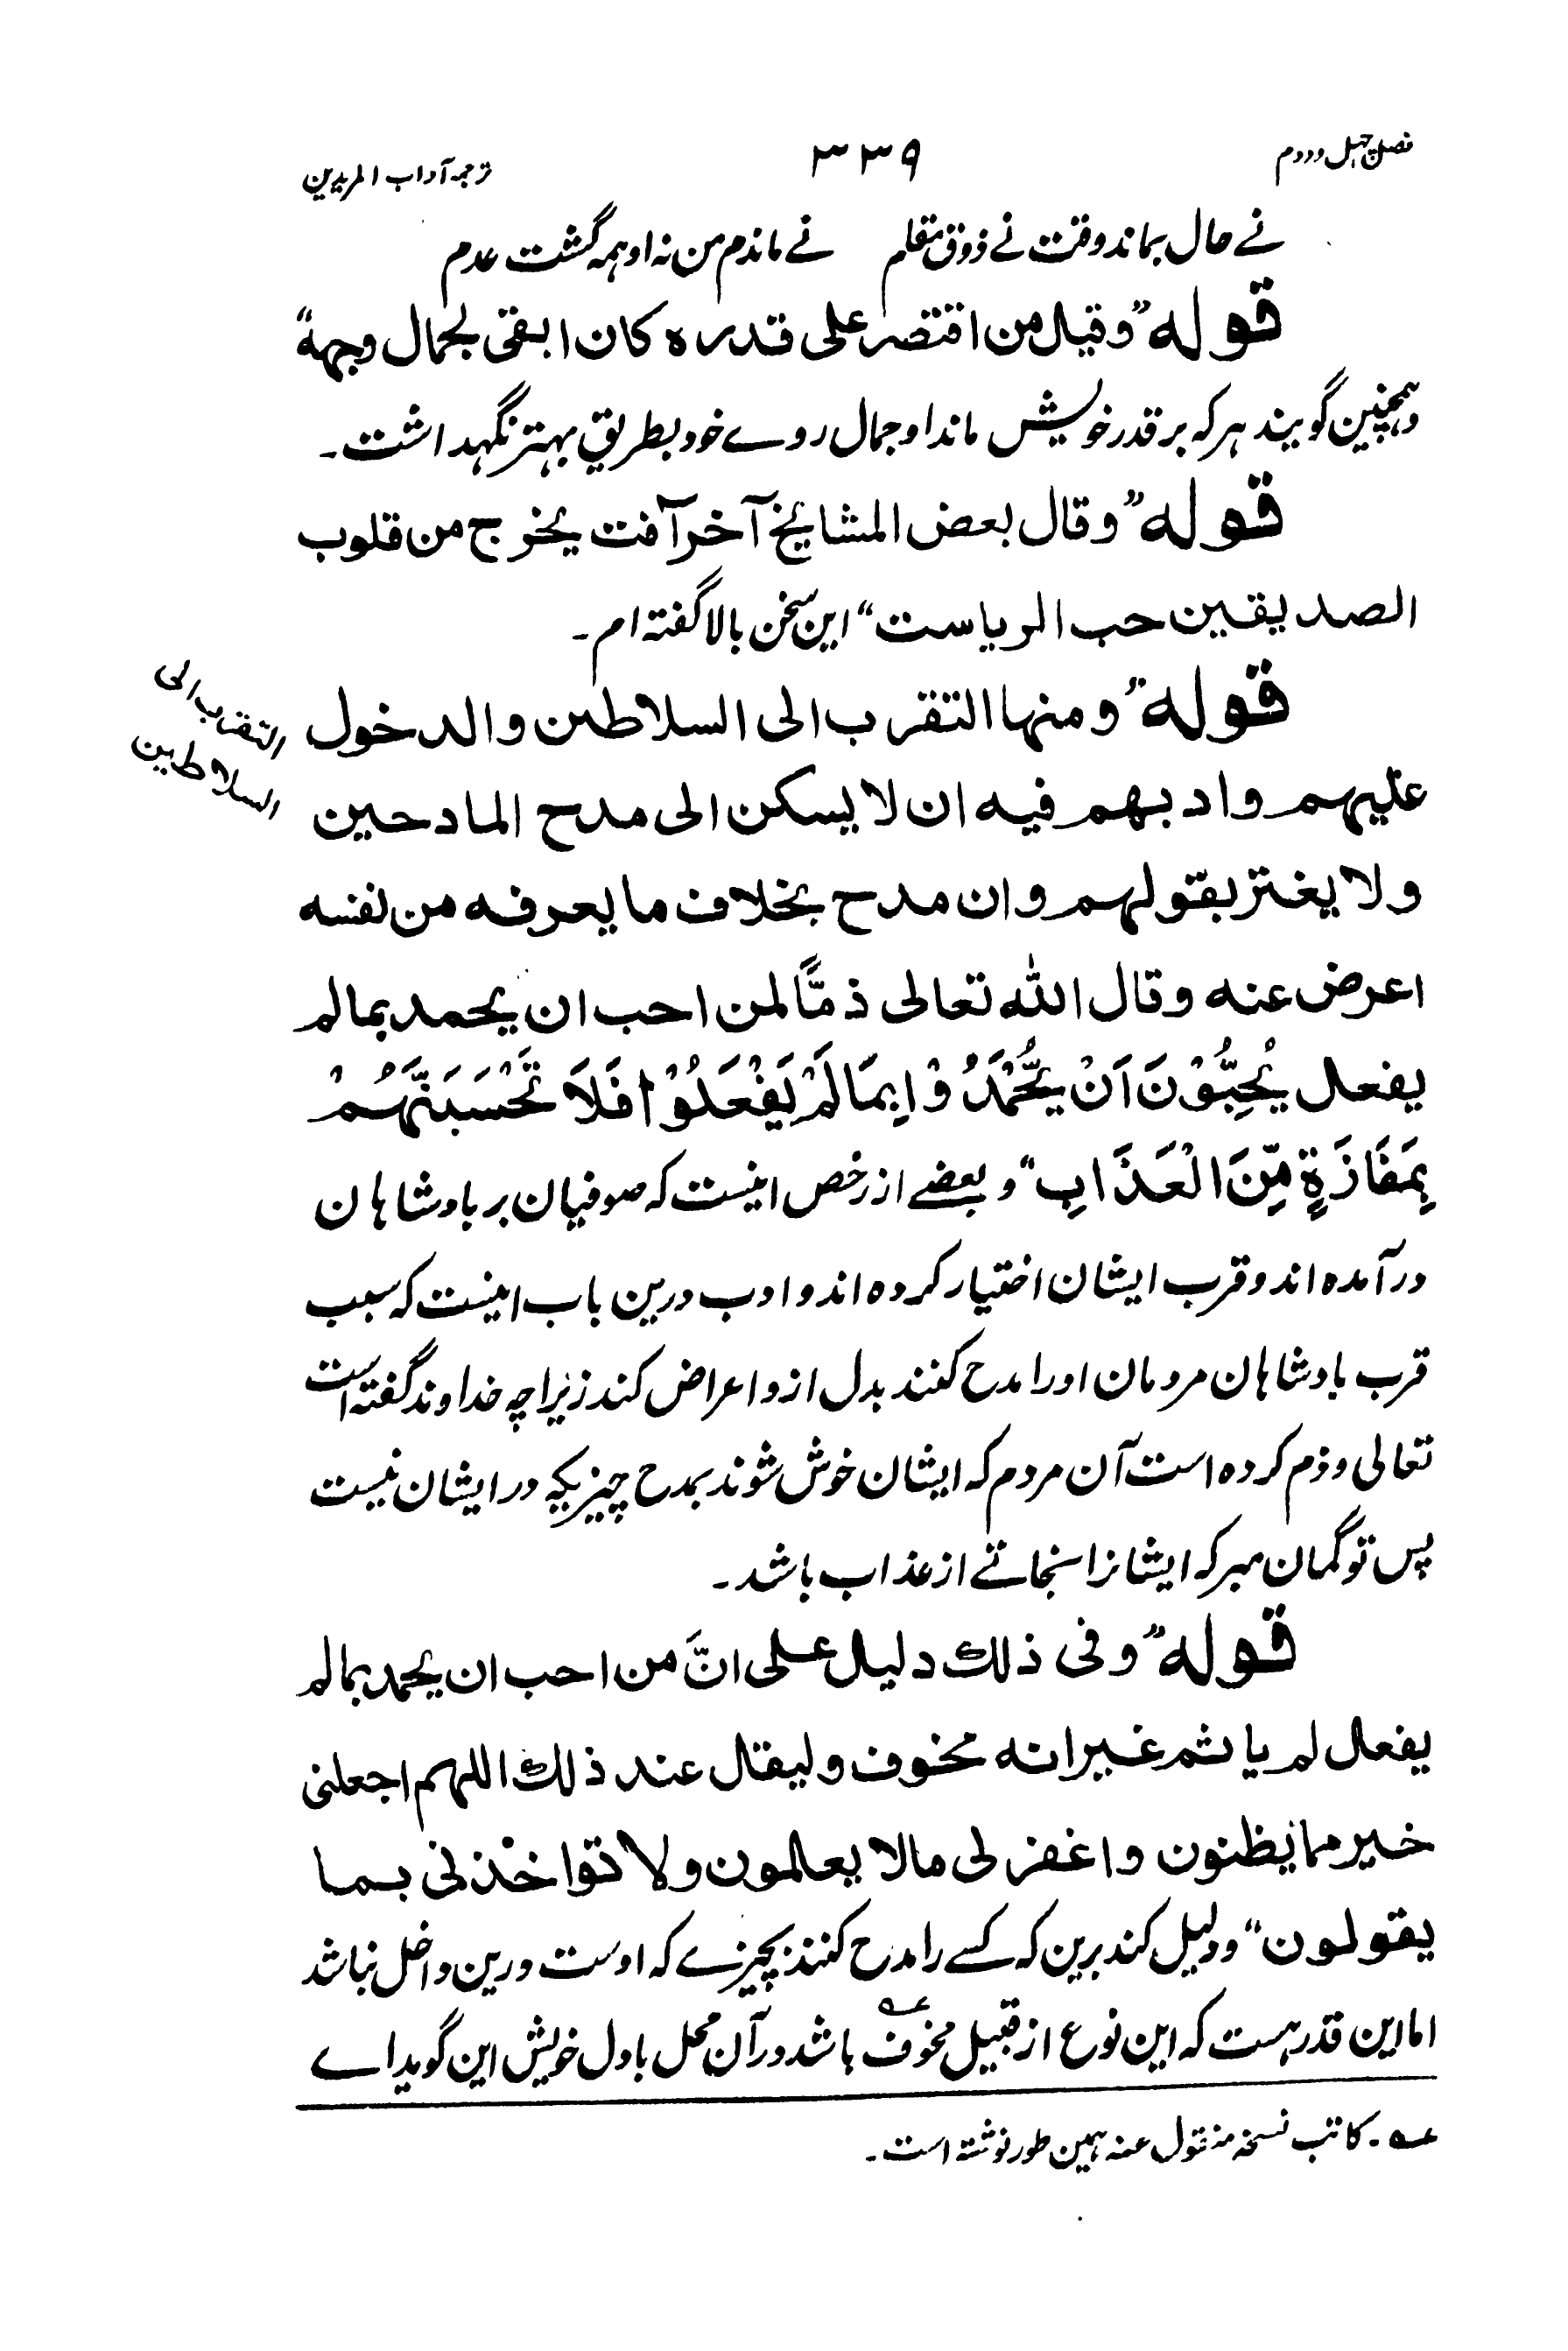 فصل چهل و دوم ۳۳۹ ترجمه آداب المریدین
نے حال بماند وقت نے ذوق نقلم نے ماندم من نه او همه گشت عدم
قوله ”وقیل من اقتصر علی قدره کان ابقی لجمال وجهه“
و همچنین گویند هر که بر قدر خویش ماند او جمال روے خود بطریق بهتر نگهداشت۔
قوله ”وقال بعض المشایخ آخر آفت یخرج من قلوب
الصدیقین حب الریاست“ این سخن بالا گفته ام۔
قوله ”ومنها التقرب الی السلاطین والدخول
التقرب الی
السلاطین
علیهم وادبهم فیه ان لا یسکن الی مدح المادحین
ولا یغتر بقولهم وان مدح بخلاف ما یعرفه من نفسه
اعرض عنه وقال الله تعالی ذمًّا لمن احب ان یحمد بما لم
یفعل یُحِبُّوْنَ اَنْ یُّحْمَدُوْا بِمَا لَمْ یَفْعَلُوْا فَلَا تَحْسَبَنَّهُمْ
بِمَفَازَةٍ مِّنَ الْعَذَابِ“ و بعضے از رخص اینست که صوفیان بر بادشاهان
در آمده اند و قرب ایشان اختیار کرده اند و ادب درین باب اینست که سبب
قرب بادشاهان مردمان او را مدح کنند بدل ازو اعراض کند زیراچه خداوند گفته است
تعالی و ذم کرده است آن مردم که ایشان خوش شوند بمدح چیزیکه در ایشان نیست
پس تو گمان مبر که ایشانرا نجاتے از عذاب باشد۔
قوله ”وفی ذلك دلیل علی انَّ من احب ان یحمد بما لم
یفعل لم یاثم غیر انه مخوف ولیقال عند ذلك اللهم اجعلنی
خیر مما یظنون واغفر لی مالا یعلمون ولا تواخذنی بما
یقولون“ و دلیل کند برین که کسے را مدح کنند بچیزے که اوست درین داخل نباشد
اما این قدر هست که این نوع از قبیل مخوف عه باشد در آن محل با دل خویش این گوید اے
عه۔ کاتب نسخه منقول عنه همین طور نوشته است۔